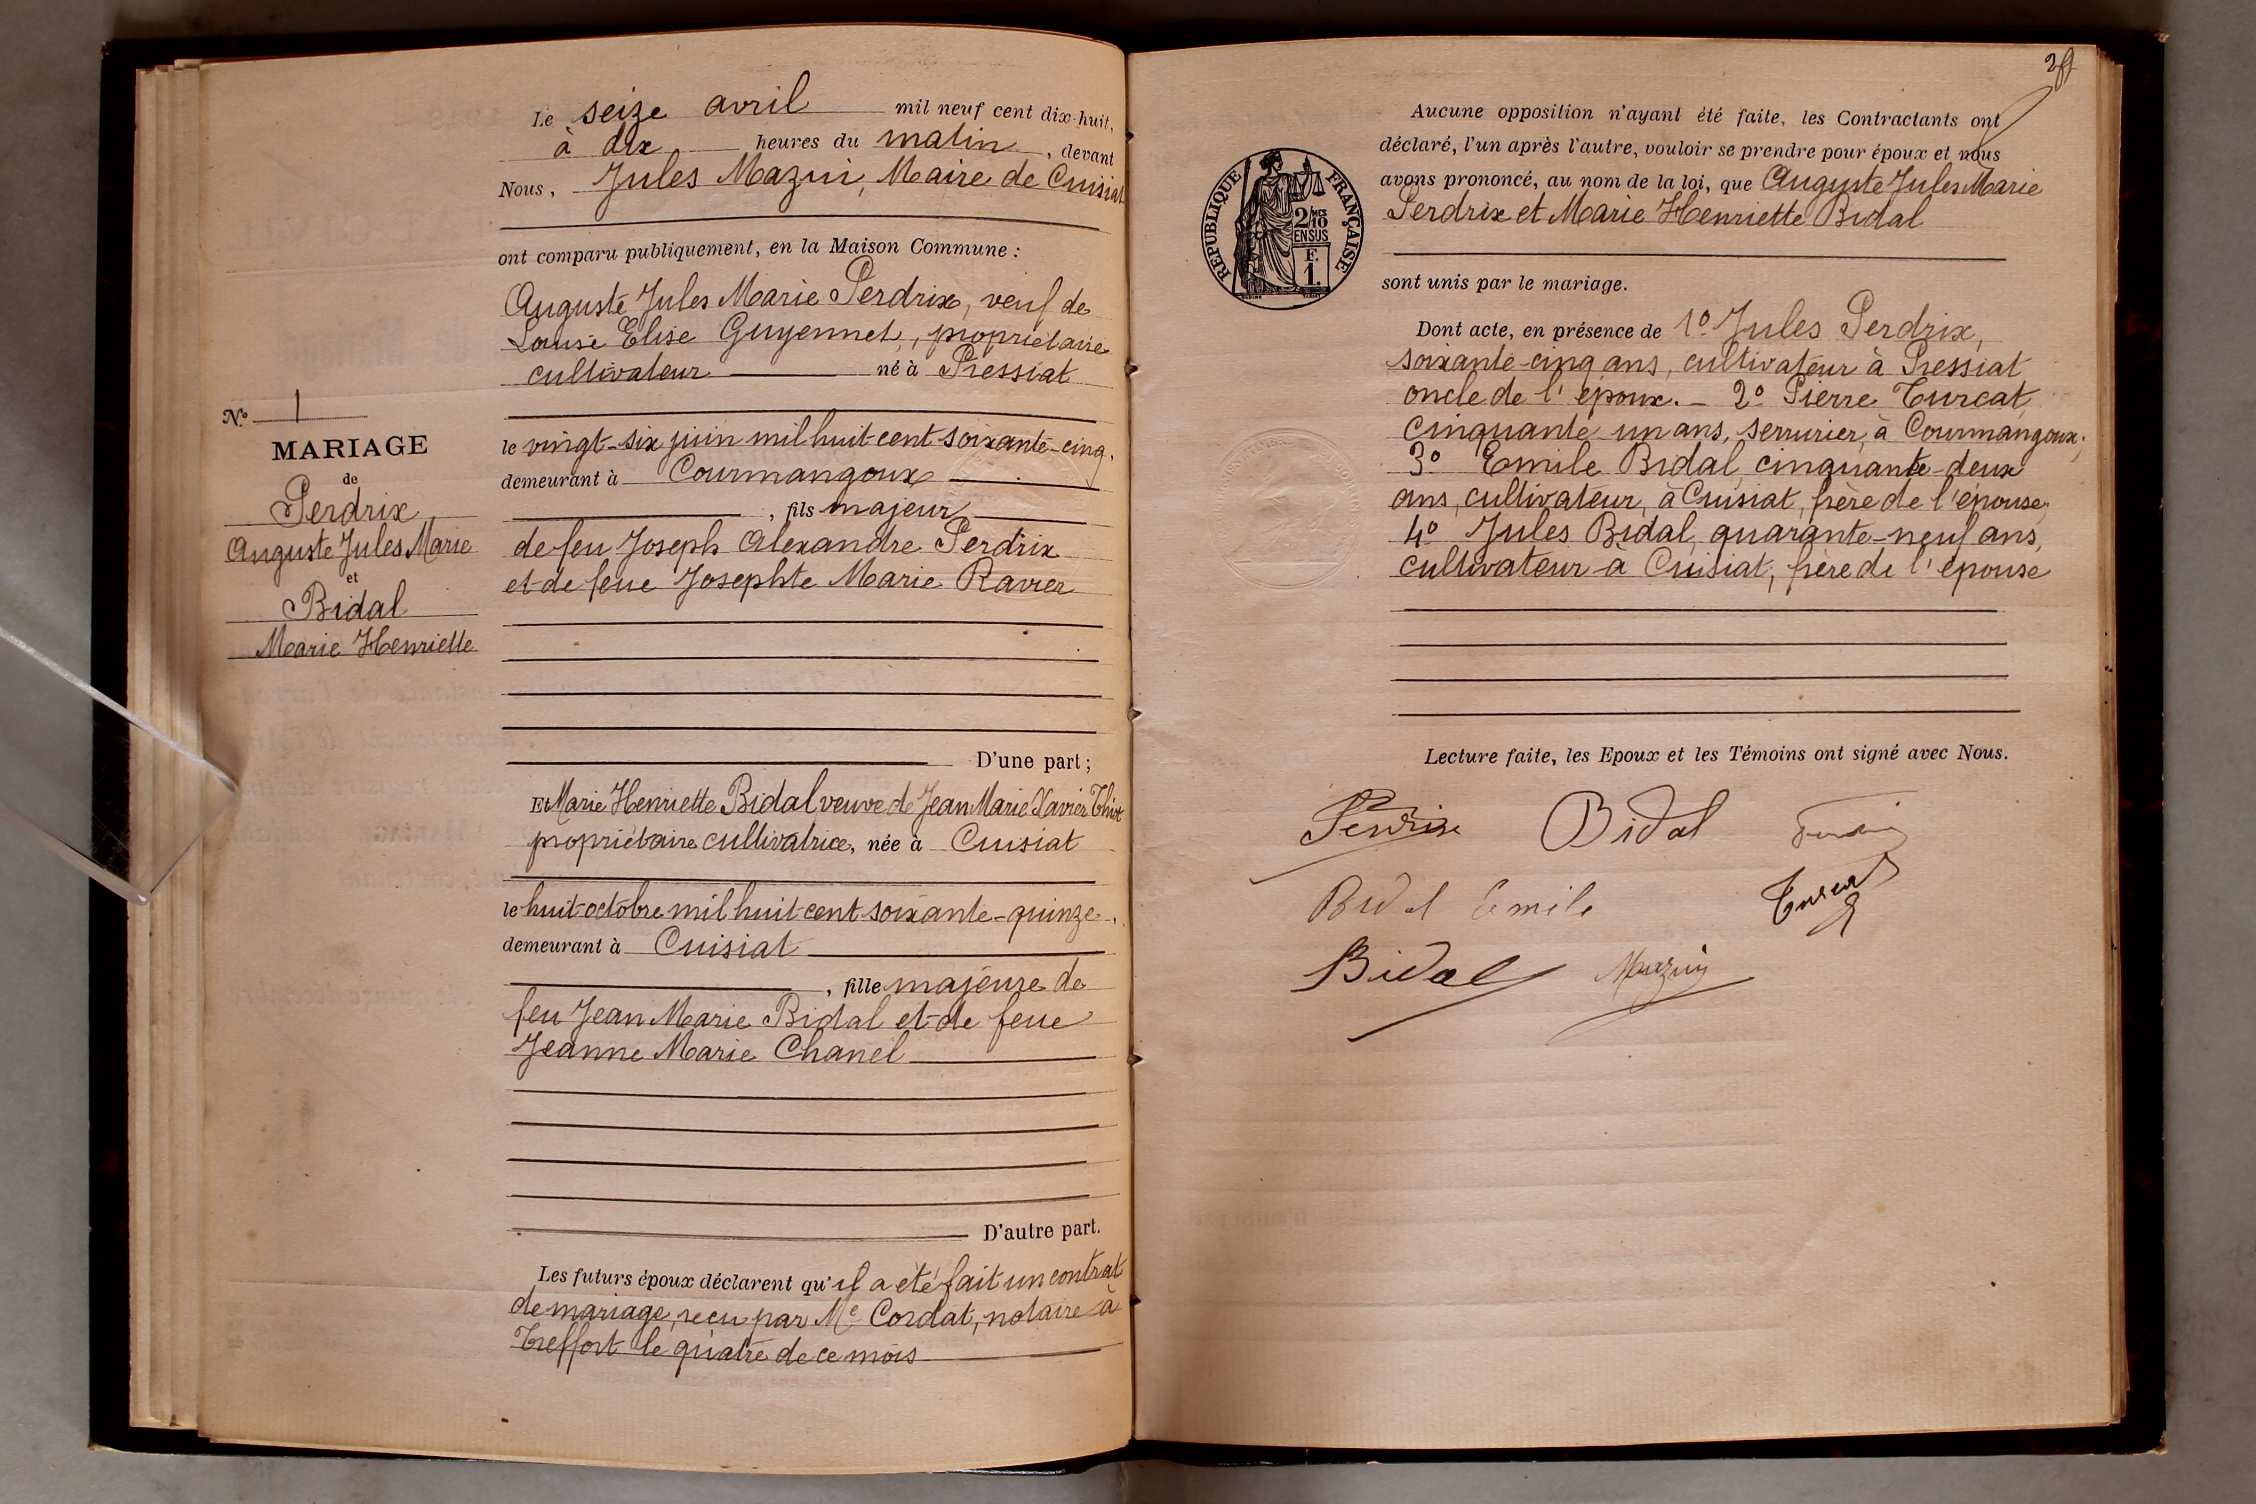 Le seize avril mil neuf cent dix-huit,
à dix heures du matin, devant
Nous, Jules Mazuir, Maire de Cuisiat
ont comparu publiquement, en la Maison Commune :
Auguste Jules Marie Perdrix, veuf de
Louise Elise Guyennet, propriétaire
cultivateur né à Pressiat
le vingt-six juin mil huit cent soixante-cinq,
demeurant à Courmangoux
, fils majeur
de feu Joseph Alexandre Perdrix
et de feue Josephte Marie Ravier
D'une part ;
Et Marie Henriette Bidal veuve de Jean Marie Xavier
propriétaire cultivatrice, née à Cuisiat
le huit octobre mil huit cent soixante-quinze,
demeurant à Cuisiat
, fille majeure de
feu Jean Marie Bidal et de feue
Jeanne Marie Chanel
D'autre part.
Les futurs époux déclarent qu'il a été fait un contrat
de mariage, reçu par Me Cordat, notaire à
Treffort le quatre de ce mois
No 1
MARIAGE
de
Perdrix
Auguste Jules Marie
et
Bidal
Marie Henriette
Aucune opposition n'ayant été faite, les Contractants ont
déclaré, l'un après l'autre, vouloir se prendre pour époux et nous
avons prononcé, au nom de la loi, que Auguste Jules Marie
Perdrix et Marie Henriette Bidal
sont unis par le mariage.
Dont acte, en présence de 1o Jules Perdrix,
soixante-cinq ans, cultivateur à Pressiat
oncle de l'époux. - 2o Pierre Turcat,
cinquante un ans, serrurier, à Courmangoux;
3o Emile Bidal, cinquante-deux
ans, cultivateur, à Cuisiat, frère de l'épouse;
4o Jules Bidal, quarante-neuf ans,
cultivateur à Cuisiat, frère de l'épouse
Lecture faite, les Epoux et les Témoins ont signé avec Nous.
Perdrix Bidal
Bidal Emile Turcat
Bidal
REPUBLIQUE FRANÇAISE
2/10MES
EN SUS
F.
1.